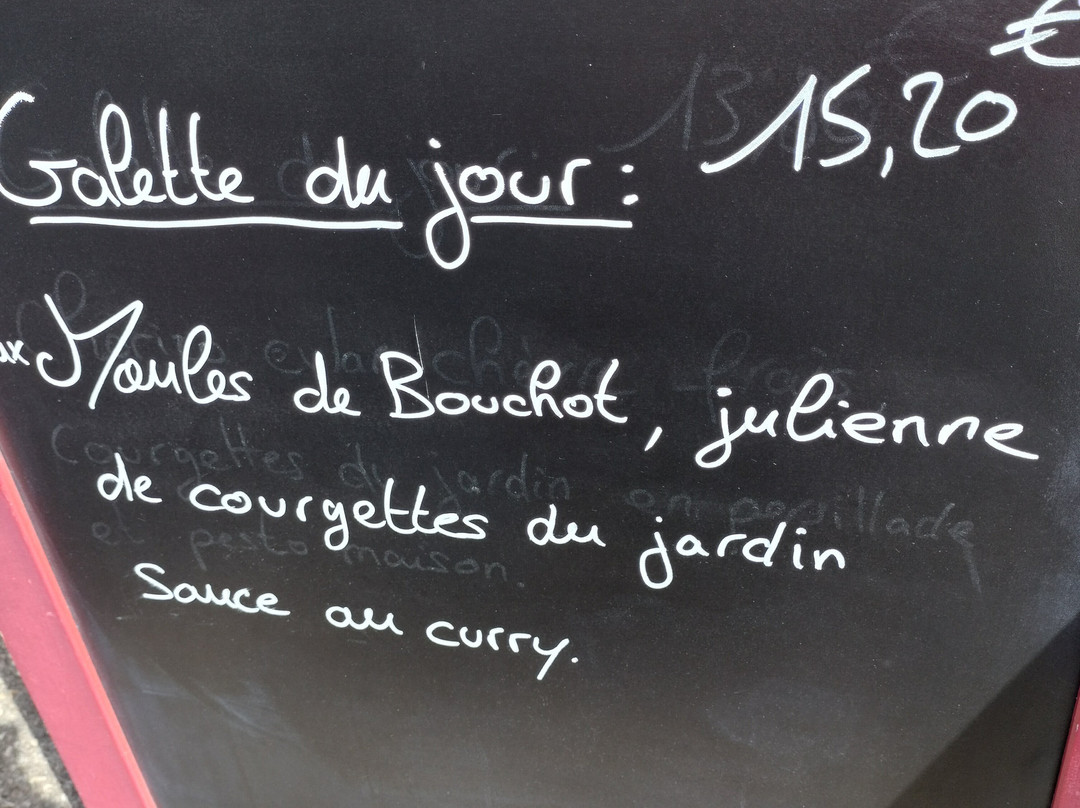 Galette du jour : 15,20 €
aux Moules de Bouchot, julienne
de courgettes du jardin
Sauce au curry.